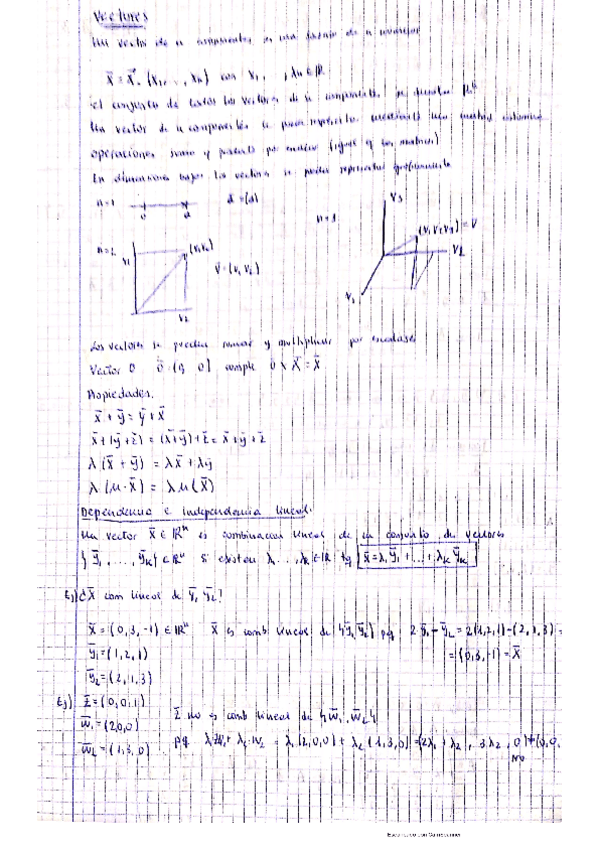 Vectores
Un vector de n componentes es una
x̄ = x⃗ = (x₁, . . , xₙ) con x₁, , xₙ ∈ ℝ
el conjunto de todos los vectores de n componentes se denota ℝⁿ
Un vector de n componentes se puede representar mediante una matriz columna
operaciones suma y producto por (igual q las matrices)
En dimensiones bajas los vectores se pueden representar gráficamente
n=1 0 a
n=2 v₁ (v₁v₂) v₂ v̄ = (v₁ v₂)
V₃ (V₁ V₂ V₃) = V V₂ V₁
Los vectores se pueden sumar y multiplicar por escalares
Vector 0
Propiedades.
x̄ + ȳ = ȳ + x̄
x̄ + (ȳ + z̄) = (x̄ + ȳ) + z̄ = x̄ + ȳ + z̄
λ (x̄ + ȳ) = λx̄ + λȳ
λ (μ · x̄) = λ μ (x̄)
Dependencia e independencia lineal.
Un vector x̄ ∈ ℝⁿ es combinacion lineal de un conjunto de vectores
{ ȳ₁, . . . , ȳₖ} ⊂ ℝⁿ si existen λ . . . , λₖ ∈ ℝ tq x̄ = λ₁ ȳ₁ + ... + λₖ ȳₖ
Ej) ¿ x̄ com lineal de ȳ₁ ȳ₂?
x̄ = (0, 3, -1) ∈ ℝⁿ x̄ es comb lineal de {ȳ₁ ȳ₂} pq 2 ȳ₁ - ȳ₂ = 2(1,2,1) - (2,1,3) =
ȳ₁ = (1, 2, 1) = (0,3,-1) = x̄
ȳ₂ = (2, 1, 3)
Ej) z̄ = (0, 0, 1) z̄ no es comb lineal de {w̄₁, w̄₂}
w̄₁ = (2,0,0)
w̄₂ = (1, 3, 0) pq λ₁w̄₁ + λ₂·w₂ = λ₁(2,0,0) + λ₂(1,3,0) = (2λ₁ + λ₂, 3λ₂, 0) ≠ (0,0,
NO
Escaneado con CamScanner